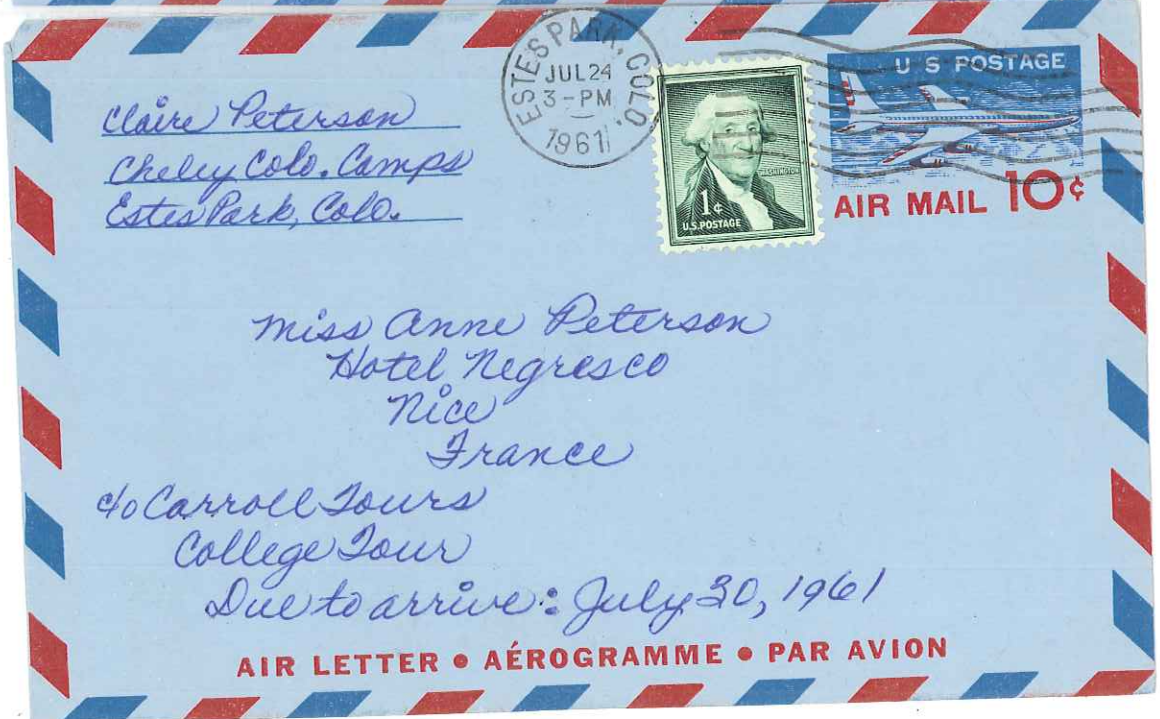 Claire Peterson
Cheley Colo. Camps
Estes Park, Colo.
ESTES PARK, COLO.
JUL 24
3-PM
1961
WASHINGTON
1¢
U.S. POSTAGE
U S POSTAGE
AIR MAIL 10¢
Miss Anne Peterson
Hotel Negresco
Nice
France
c/o Carroll Tours
College Tour
Due to arrive: July 30, 1961
AIR LETTER • AÉROGRAMME • PAR AVION